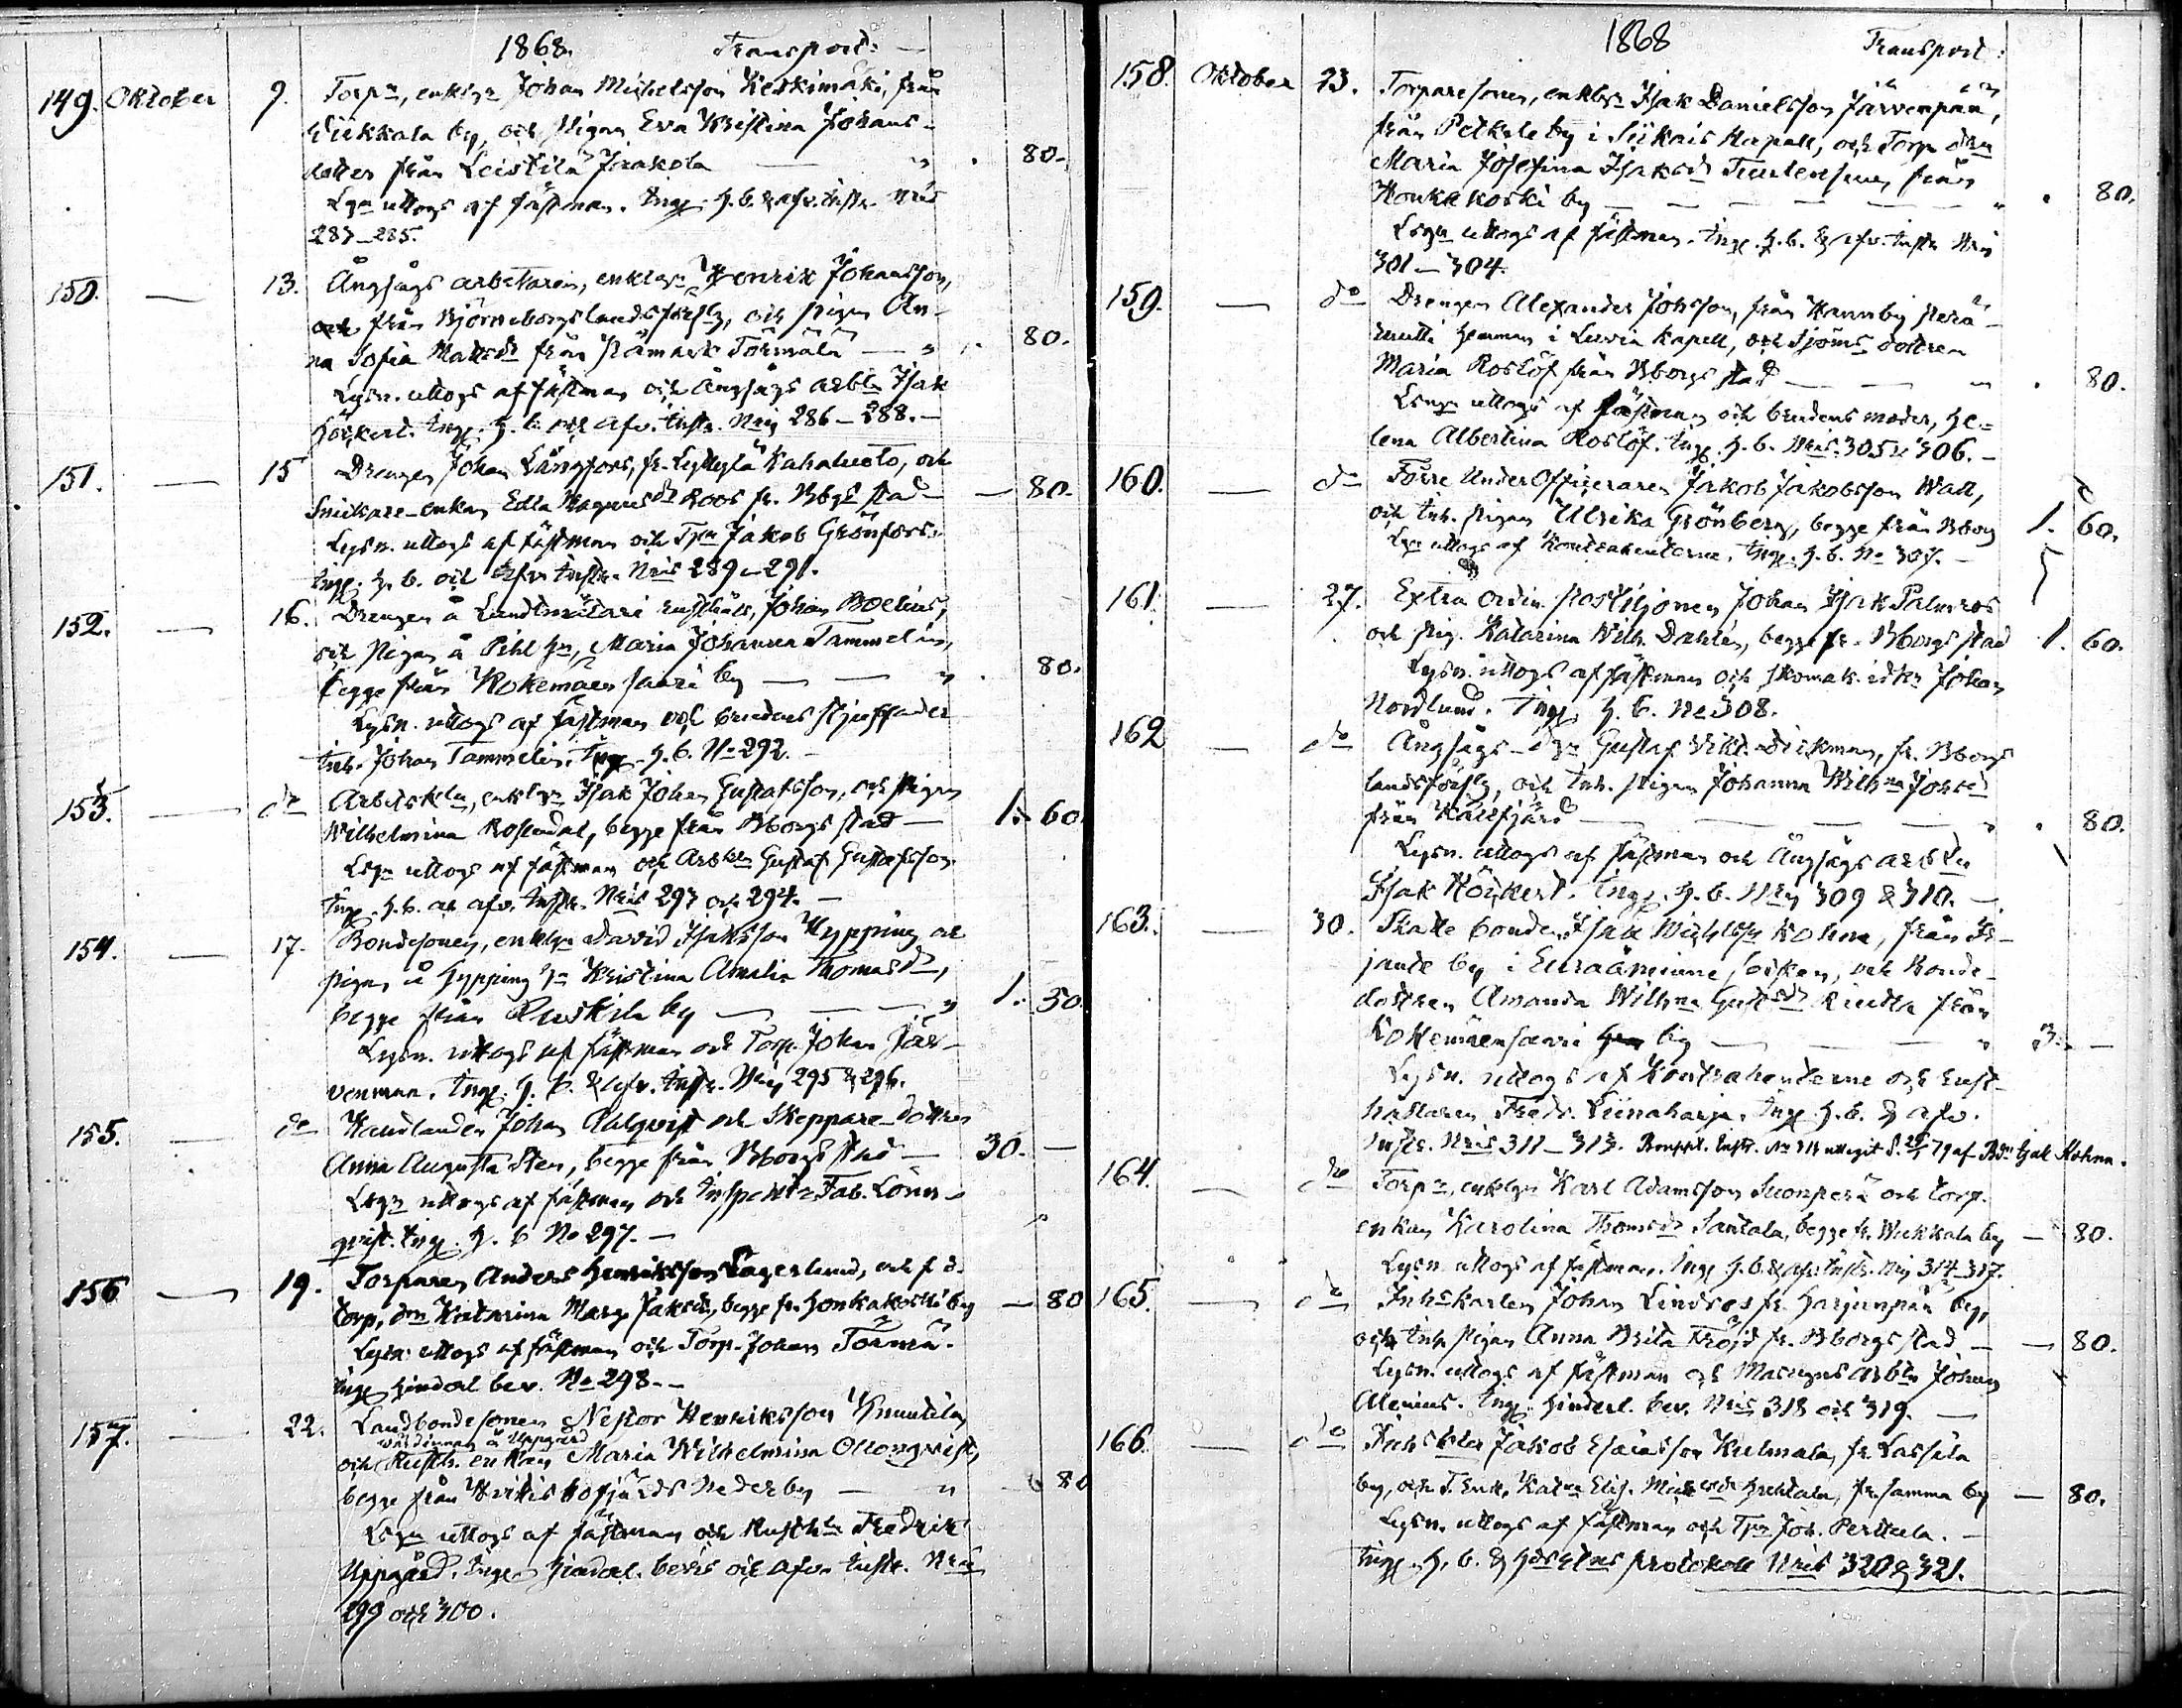 1868. Transport:
149. Oktober 9. Torp:n, enkl:n Johan Michelsson Keskimäki, från
Wiikkala by, och pigan Eva Kristina Johans-
dotter från Leistilä Jaakola " . 80.
Lysn uttogs af fästman. Ingg. h. b. & afv. Instr. Nris
283–285.
150. — 13. Ångsågs arbetaren, enklgn Henrik Johansson,
från Björneborgs landsförslg, och pigan An-
na Sofia Mattsdr från Törmälä — " . 80.
Lysn. uttogs af fästman och Ångsågs arbtn Isak
Höckert. Ingg. h. b. och afv. Instr. Nris 286–288.—
151. — 15 Drengen Johan Långfors, fr. Lyttylä Kahaluoto, och
Snickare-enkan Edla Magnusdr Roos fr. Bbgs stad — 80.
Lysn. uttogs af fästman och Tpn Jakob Grönfors.
Ingg. h. b. och afv. Instr. Nris 289–291.
152. — 16. Drengen å rusthåll, Johan Boelius,
och Pigan å Pihl hn, Maria Johanna Tammelin,
begge från Kokemäensaari by — — " . 80.
Lysn. uttogs af fästman och brudens stjuffader
Inh. Johan Tammelin. Ingg. h. b. No 292.—
153. — do Arbetskln, enklgn Isak Johan Gustafsson, och pigan
Wilhelmina Rosendal, begge från Bborgs stad — 1. 60.
Lsgn uttogs af fästman och Arbkn Gustaf Gustafsson
Ingg. h. b. och afv. Instr. Nris 293 och 294. —
154. — 17. Bondesonen, enklgn David Isaksson Hypping och
pigan å Hypping hn Kristina Amalia Thomasdr,
begge från Ruskila by — — " 1. 50.
Lysn. uttogs af fästman och Torp. Johan Jär-
venmaa. Ingg. h. b. & afv. Instr. Nris 295 & 296.
155. — do Handlanden Johan Ahlqvist och Skeppare-dottren
Anna Augusta Sten, begge från Bborgs stad — 30. —
Lsgn uttogs af fästman och Inspektor Fab. Lönn-
qvist. Ingg. h. b No 297. —
156 — 19. Torparen Anders Henriksson Lagerlund, och f d.
torp, drn Katarina Marg. Jaksdr, begge fr. Honkakoski by — 80
Lysn: uttogs af fästman och Torp. Johan Törmä.
Ingg hinderl bev. No 298.—
157. — 22. Landbondesonen Nestor Henriksson Knuutila,
värdinnan å Uppgård
och Rusth. enkan Maria Wilhelmina Ollonqvist,
begge från Hvittisbofjärds Nederby — " 80
Lsgn uttogs af fästman och Rusthln Fredrik
Uppgård. Ingg hinderl. bevis och afv. Instr. Nris
299 och 300.
1868 Transport:
158. Oktober 23. Torparesonen, enklgn Isak Danielsson Järvenpää,
från by i Siikais Kapell, och Torp drn
Maria Josefina Isaksdr från
Honkakoski by — — — — " . 80.
Lsgn uttogs af fästman. Ingg. h. b. & afv. Instr Nris
301–304.
159. — do Drengen Alexander Johsson, från Hannby
hemman i Luvia Kapell, och Sjöms dottren
Maria Roslöf från Bborgs stad — — " . 80.
Lsngn uttogs af fästman och brudens moder, He-
lena Albertina Roslöf. Ingg. h. b. Nris. 305 & 306.—
160. — do Förre UnderOfficeraren Jakob Jakobsson Wall,
och Inh. pigan Ulrika Grönberg, begge från Bborg 1. 60.
Lgn uttogs af Kontrahenterna. Ingg. h. b. No 307.—
161. — 27. Extra ordin. Postiljonen Johan Isak Palmros
och pig. Katarina Wilh. Dahlén, begge fr. Bborgs stad 1. 60.
Lysn. uttogs af fästman och skomak. idkn Johan
Nordlund. Ingg. h. b. No 308.
162 — do Ångsågs-drn Gustaf Vikt. Dickman, fr. Bborgs
landsförslg, och Inh. pigan Johanna Wilhna Johsdr
från — — — " . 80.
Lysn. uttogs af fästman och Ångsågs arbtn
Isak Höckert. Ingg. h. b. Nris 309 & 310. —
163. — 30. Skatte bonden Isak Michelss Kohna, från Ir-
jante by i Euraåminne socken, och Bonde-
dottren Amanda Wilhna Gustsdr från
Kokemäensaari by — — " 3. —
Lysn. uttogs af Kontrahenterne och Rust-
hållaren Fredr. Liinaharja. Ingg. h. b. & afv.
Instr. Nris 311–313. af Isak Kohna.
164. — do Torpn, enklgn Karl Adamsson Suonperä och torp.
enkan Karolina Thomsdr Santala, begge fr. Wiikkala by — 80.
Lysn uttogs af fästman. Ingg h. b. & afv. Instr. Nris 314–317.
165. — do Inhskarlen Johan Lindros fr. Harjunpää by,
och Inh pigan Anna Brita Fröjd fr. Bborgs stad — 80.
Lysn. uttogs af fästman och arbtn Johan
Alenius. Ingg. hinderl. bev. Nris 318 och 319. —
166. — do Inhskln Jakob Esaiasson Kulmala, fr. Lassila
by, och Elis. fr. samma by — 80.
Lysn. uttogs af fästman och Tpn Joh. Perttula. —
Ingg. h. b. & protokoll Nris 320 & 321.